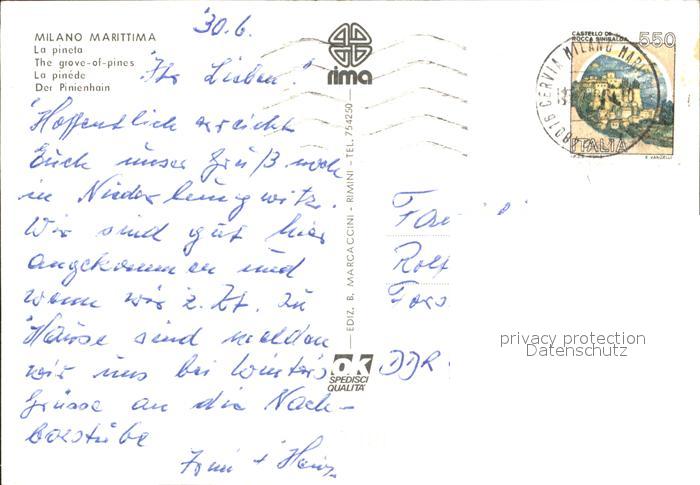 MILANO MARITTIMA
La pineta
The grove-of-pines
La pinède
Der Pinienhain
30.6.
Ihr Lieben!
Hoffentlich erreicht
Euch unser Gruß noch
in Niederlungwitz.
Wir sind gut hier
angekommen und
wenn wir z. Zt. zu
Hause sind melden
wir uns bei Winters
Grüsse an die Nach-
barstube
+ Hans
rima
EDIZ. B. MARCACCINI - RIMINI - TEL. 754250
ok
SPEDISCI
QUALITA'
CASTELLO DI
ROCCA SINIBALDA
550
ITALIA
CERVIA MILANO
48016
Fam
Rolf
DDR
privacy protection
Datenschutz